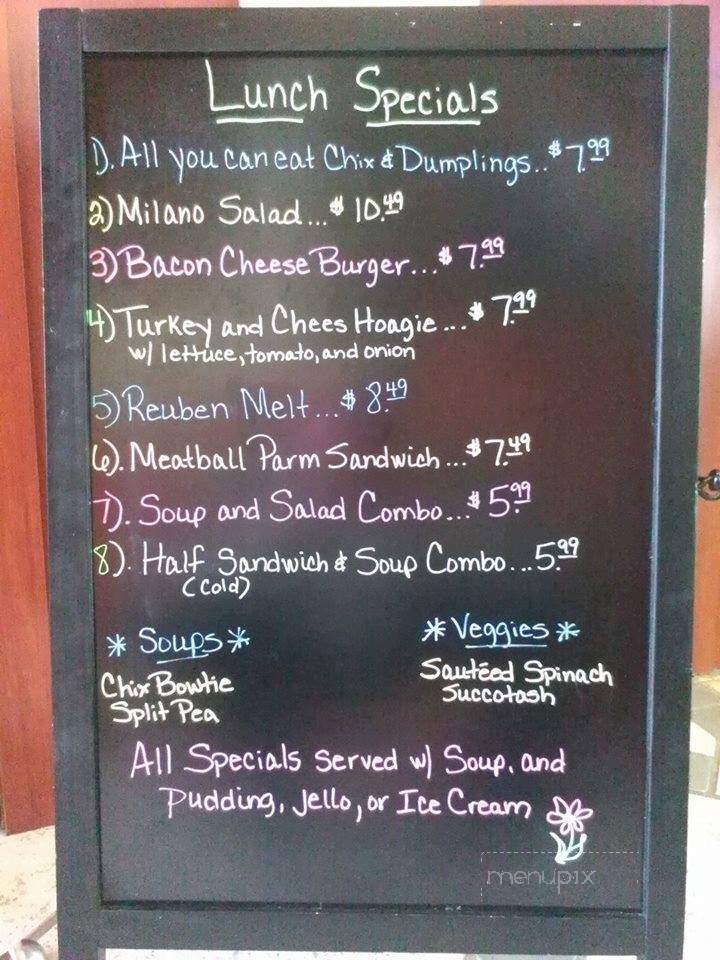 Lunch Specials
1). All you can eat Chix & Dumplings..$7.99
2) Milano Salad...$ 10.49
3) Bacon Cheese Burger...$ 7.99
4) Turkey and Chees Hoagie...$ 7.99
w/ lettuce, tomato, and onion
5) Reuben Melt...$ 8.49
6). Meatball Parm Sandwich...$7.49
7). Soup and Salad Combo...$5.99
8). Half Sandwich & Soup Combo...5.99
(Cold)
* Soups *
Chix Bowtie
Split Pea
* Veggies *
Sautéed Spinach
Succotash
All Specials served w/ Soup, and
Pudding, Jello, or Ice Cream
menupix